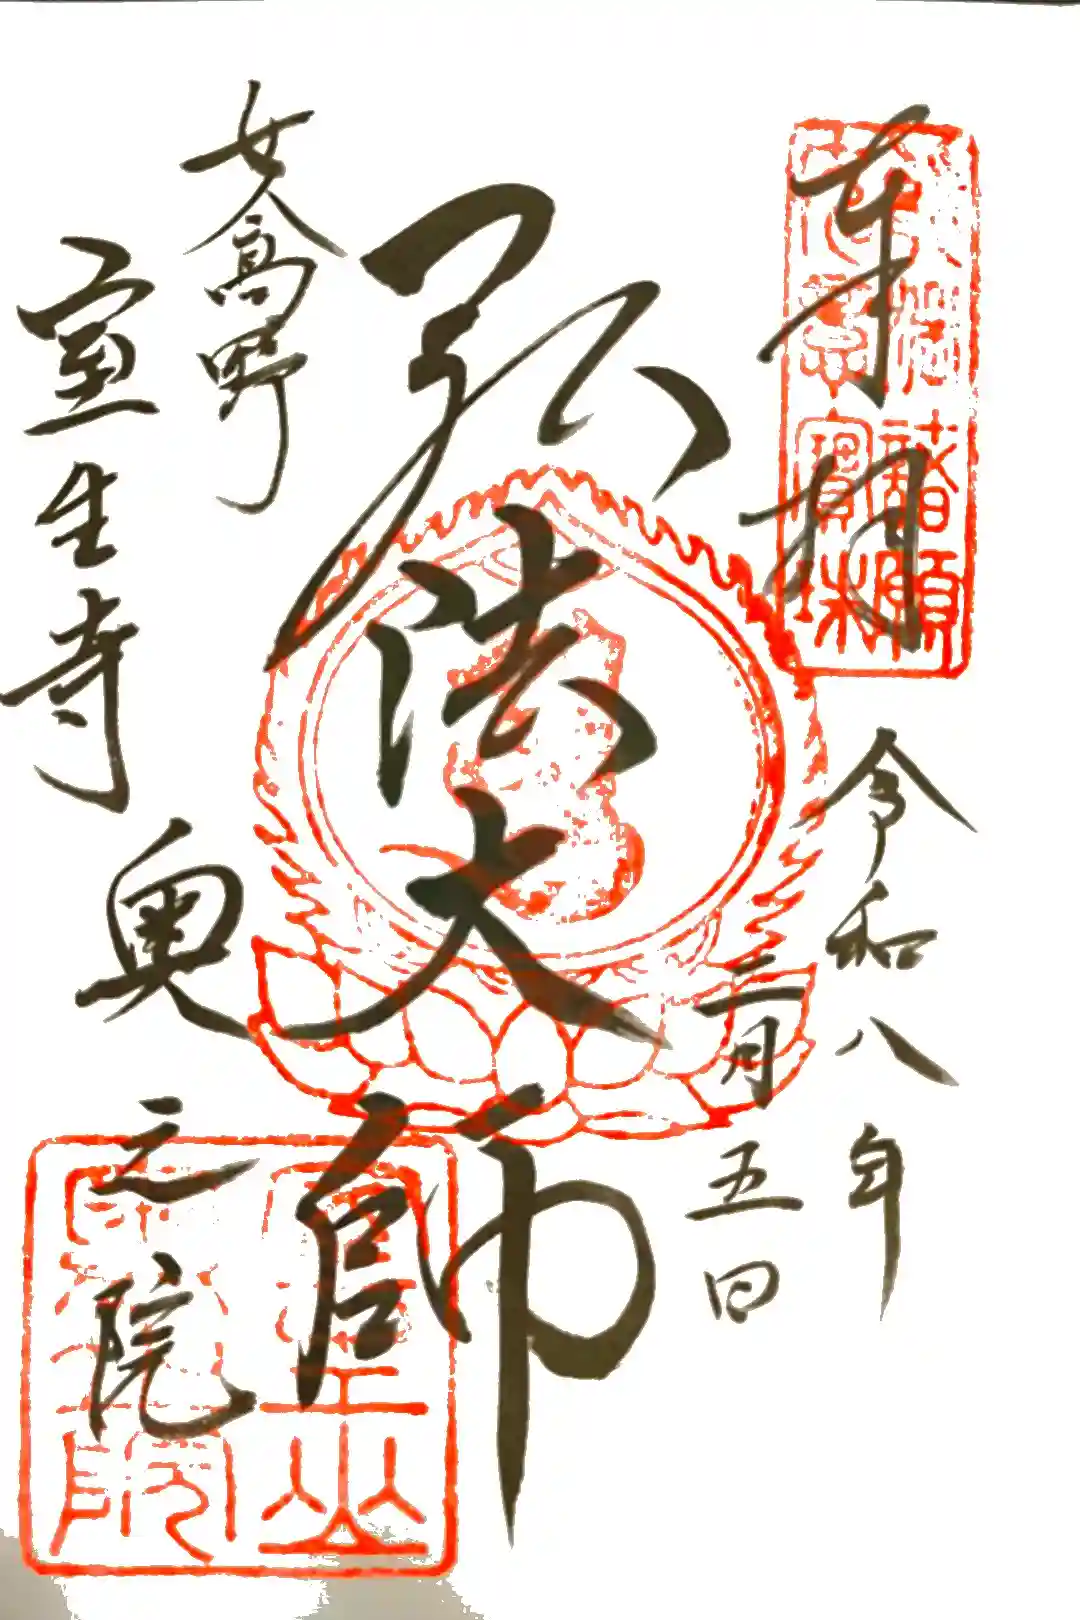 奉拝
令和八年
三月
五日
弘法大師
女人高野
室生寺
奥之院